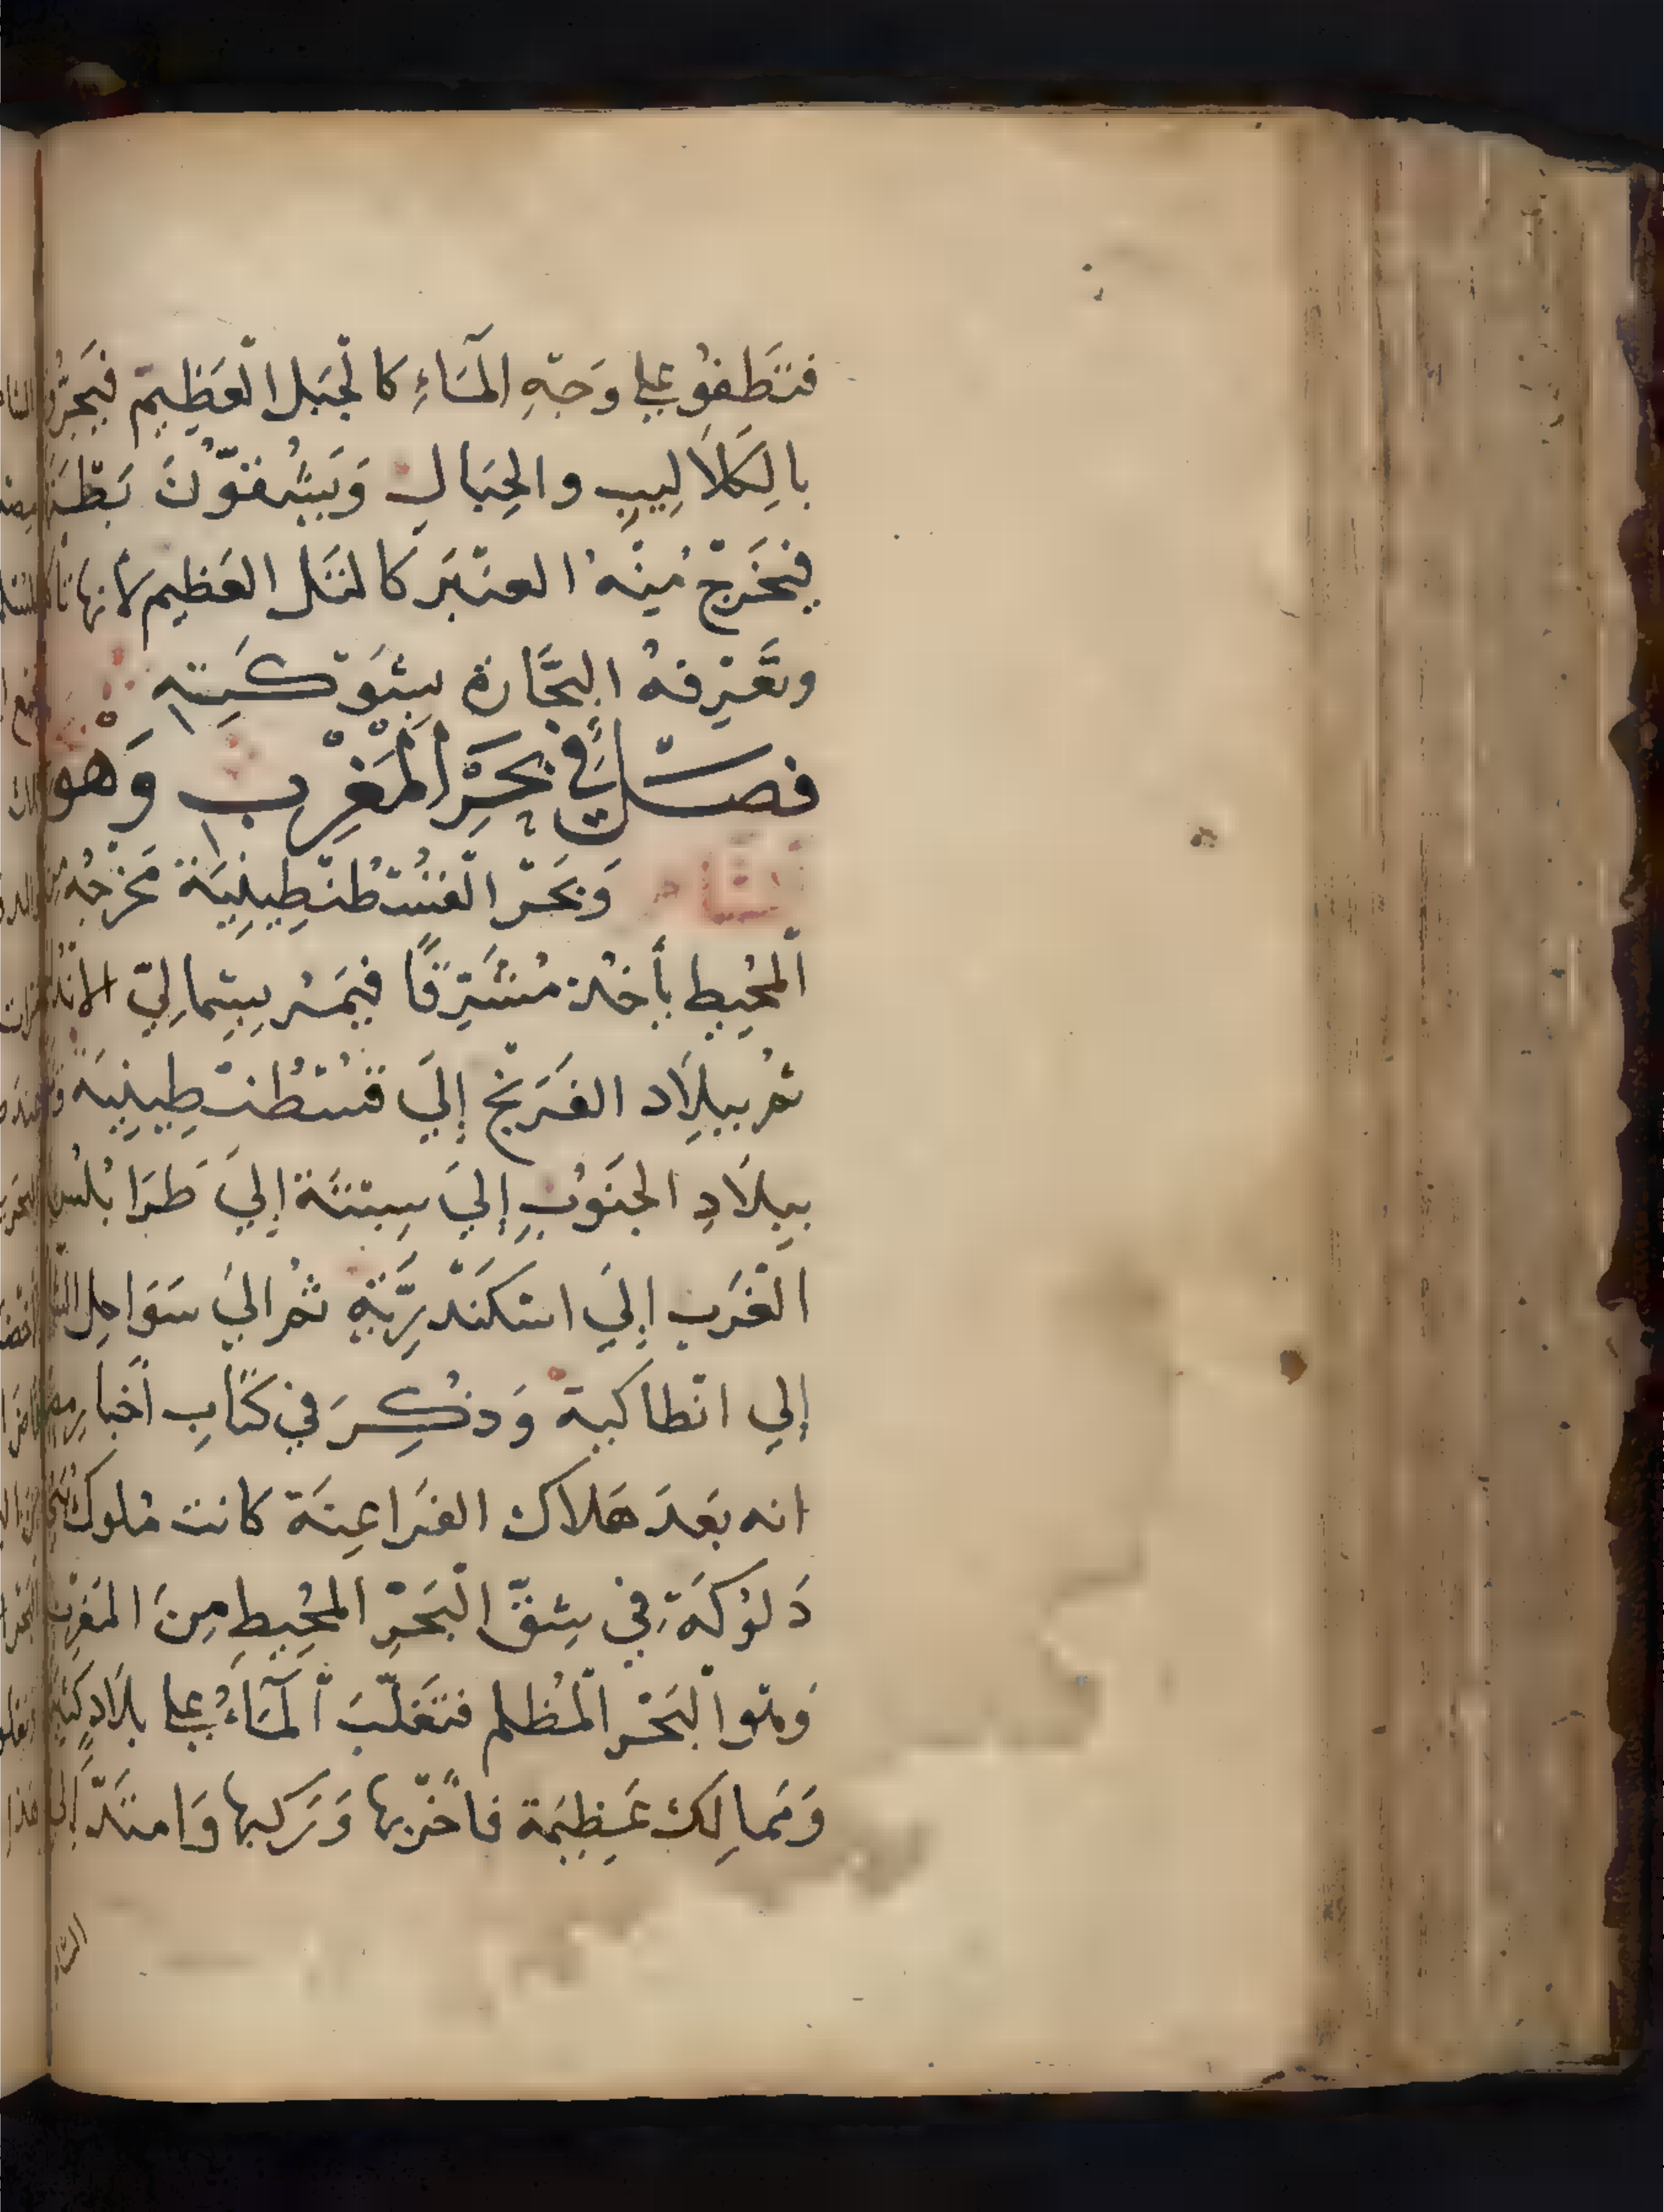 فتَطفُو علي وَجهِ المَآءِ كالجبَل العَظِيم فيَجرّ
بالكَلَالِيبِ والحِبَالِ وَيَشُقّوُنَ بَطْنَ
فيَخرَجْ مُنِهْ العنبَر كالتَل العَظِيم لأنها
وتَعْرِفهُ البَحَّارة بِشَوْكَتِهِ
فصْل في بَحَرِ المَغْرِبِ وَهو
وَبَحَر القُسْطُنْطِينِيَة مَخرَجُه
المُحِيط يأخُذ مُشَرِقًا فيَمُر بِشِمالِيّ الاندُ
ثم ببِلَاد الفَرَنْج إلَي قُسْطُنْطِينِيَة
بِبلَادِ الجنَوُبِ إليَ سبتَة إلَي طَرَابُلُس
الغَرب إلَي اسكَنْدرِيَّةِ ثُم الَي سَوَاحِل
إلي انْطاكية وَذُكِرَ في كتَابِ أخبارِ
انه بَعدَ هَلاك الفَرَاعِنَة كانت مُلوك
دَلوُكَة في شِقّ البَحْرِ المحُيطِ مِنَ المَغرِب
وَهو البَحْر المُظلم فتَغَلّبَ المَآءُ علي بلَادٍ
وَمَمالِك عَظِيمَة فاخرَبها وَرَكبها وَامتَدّ إلَي